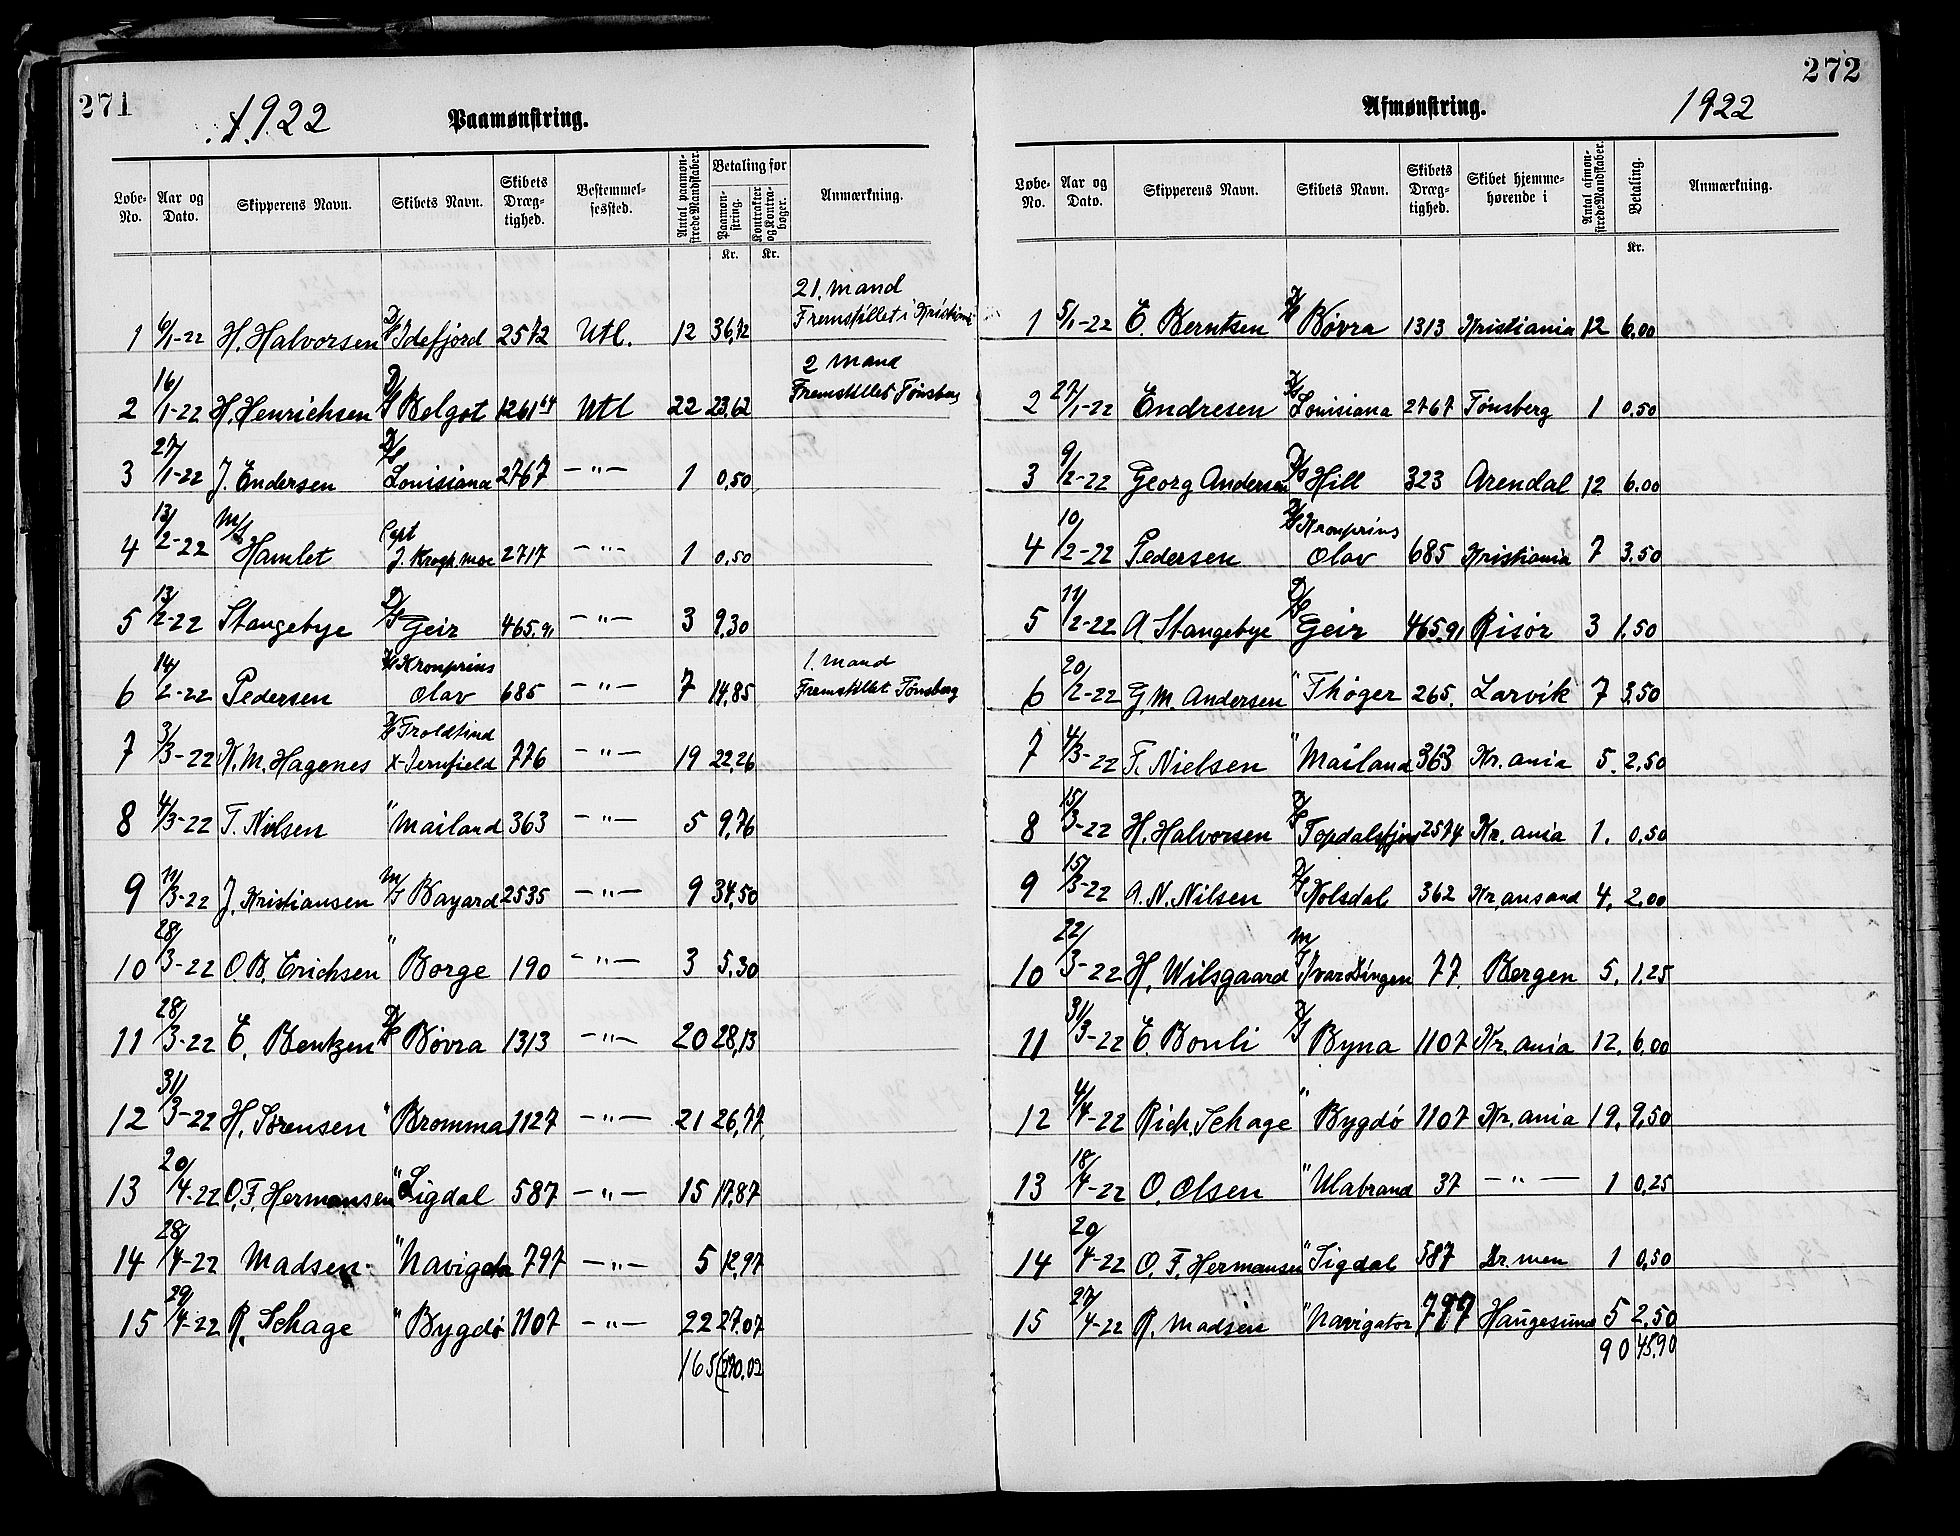 271
1922
Paamønstring.
Løbe-No. Aar og Dato. Skipperens Navn. Skibets Navn. Skibets Dræg-tighed. Bestemmel-sessted. Antal paamøn-strede Mandskaber. Betaling for Paamøn-string. Kr. Kontrakter og Kontra-bøger. Kr. Anmærkning.
1 6/1-22 H. Halvorsen D/S Idefjord 2572 Utl. 12 36,72 21. mand Fremstillet i Kristiania
2 16/1-22 H. Henrichsen D/S Belgot 1261 64 Utl 22 23,62 2 mand Fremstillet Tønsberg
3 27/1-22 J. Endersen D/S Louisiana 2767 — " — 1 0,50
4 13/2-22 M/S Hamlet Capt J. Krogh. Moe 2717 — " — 1 0,50
5 13/2-22 Stangebye D/S Geir 465,91 — " — 3 9,30
6 14/2-22 Pedersen D/S Kronprins Olav 685 — " — 7 14,85 1. mand Fremstillet Tønsberg
7 3/3-22 K. M. Hagenes D/S Troldtind x- Jernfjeld 776 — " — 19 22,26
8 4/3-22 T. Nilsen " Mailand 363 — " — 5 9,76
9 11/3-22 J. Kristiansen M/S Bayard 2535 — " — 9 34,50
10 28/3-22 O. B. Erichsen " Borge 190 — " — 3 5,30
11 28/3-22 E. Bentzen D/S Bøvra 1313 — " — 20 28,13
12 31/3-22 H. Sørensen " Bromma 1127 — " — 21 26,77
13 20/4-22 O. F. Hermansen " Sigdal 587 — " — 15 17,87
14 28/4-22 Madsen " Navigator 797 — " — 5 12,97
15 29/4-22 R. Schage " Bygdö 1107 — " — 22 27,07
165 270.02
272
Afmønstring.
1922
Løbe-No. Aar og Dato. Skipperens Navn. Skibets Navn. Skibets Dræg-tighed. Skibet hjemme-hørende i Antal afmøn-strede Mandskaber. Betaling. Kr. Anmærkning.
1 5/1-22 E. Berntsen D/S Bøvra 1313 Kristiania 12 6,00
2 27/1-22 Endresen D/S Louisiana 2767 Tønsberg 1 0,50
3 9/2-22 Georg Andersen D/S Hill 323 Arendal 12 6.00
4 10/2-22 Pedersen D/S Kronprins Olav 685 Kristiania 7 3.50
5 11/2-22 A Stangebye D/S Geir 465,91 Risör 3 1,50
6 20/2-22 G. M. Andersen " Thöger 265. Larvik 7 3,50
7 4/3-22 T. Nielsen " Mailand 363 Kr. ania 5. 2,50
8 15/3-22 H. Halvorsen D/S Topdalsfjord 2574 Kr. ania 1. 0,50
9 15/3-22 A. N. Nilsen D/S Kolsdal 362 Kr, ansand 4, 2,00
10 22/3-22 H. Wilsgaard M/S 77 Bergen 5, 1,25
11 31/3-22 E. Bonli D/S Byna 1107 Kr. ania 12. 6,00
12 4/4-22 Rich. Schage " Bygdö 1107 Kr. ania 19, 9,50
13 18/4-22 O. Olsen " Ulabrand 37 — " — 1 0,25
14 20/4-22 O. F. Hermansen " Sigdal 587 Dr. men 1 0,50
15 27/4-22 R. Madsen " Navigator 797 Haugesund 5 2,50
90 45,90